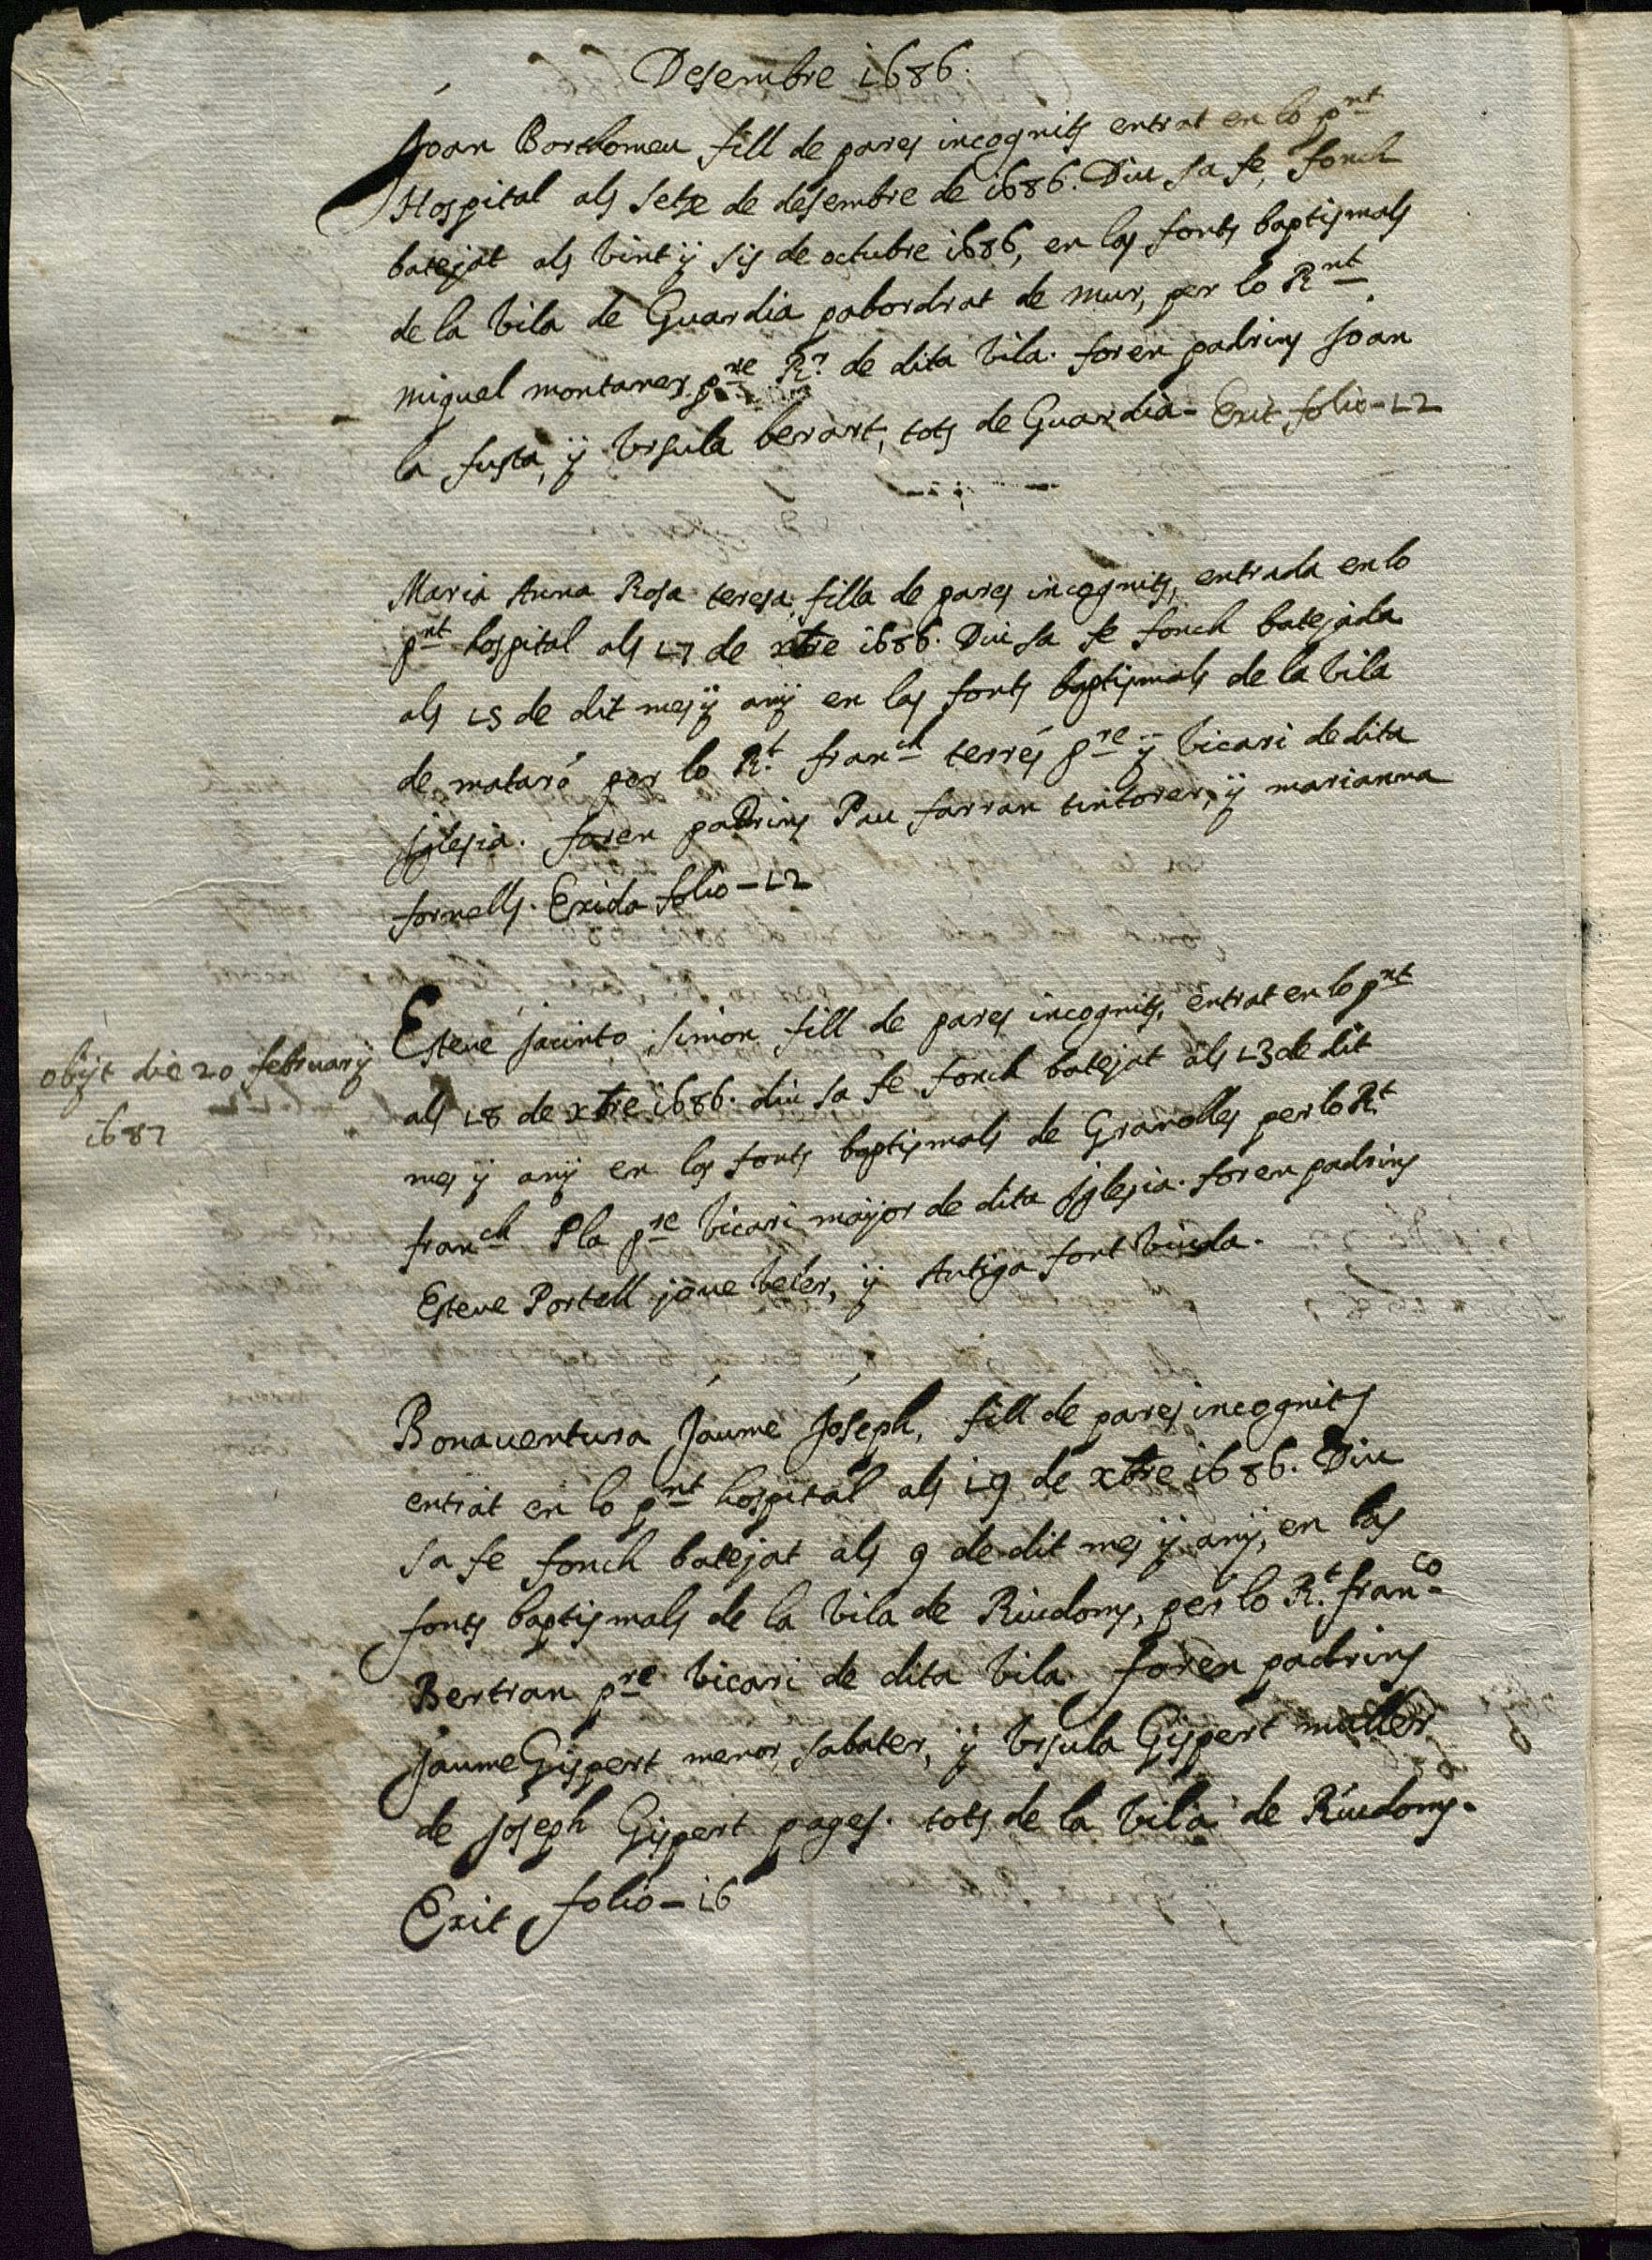 Desembre 1686.
Joan Barthomeu fill de pares incognits entrat en lo pnt
Hospital als setze de desembre de 1686. Diu sa fe, fonch
batejat als vint ÿ sis de octubre 1686, en las fonts baptismals
de la vila de Guardia pabordrat de mur, per lo Rnt
miquel montaner pre Rr de dita vila. foren padrins Joan
la fusta, ÿ Vrsula berart, tots de Guardia - Exit folio - 12
Maria Anna Rosa teresa, filla de pares incognits, entrada en lo
pnt hospital als 17 de xbre 1686. Diu sa fe fonch batejada
als 15 de dit mes ÿ anÿ en las fonts baptismals de la vila
de mataró per lo Rt. franch terrés pre ÿ vicari de dita
Jglesia. foren padrins Pau farran tintorer, ÿ marianna
fornells. Exida folio - 12
Esteve Jacinto Simon fill de pares incognits, entrat en lo pnt
obÿt die 20 februarÿ
1687
als 18 de xbre 1686. diu sa fe fonch batejat als 13 de dit
mes ÿ anÿ en las fonts baptismals de Granolles per lo Rt
franch Pla pre vicari maÿor de dita Jglesia. foren padrins
Esteve Portell jove veler, ÿ Antiga font viuda.
Bonaventura Jaume Joseph, fill de pares incognits
entrat en lo pnt hospital als 19 de xbre 1686. Diu
sa fe fonch batejat als 9 de dit mes ÿ anÿ, en las
fonts baptismals de la vila de Riudoms, per lo Rt. franco
Bertran pre vicari de dita vila. foren padrins
Jaume Gispert menor, sabater, ÿ Vrsula Gispert muller
de Joseph Gispert pages. tots de la vila de Riudoms.
Exit folio - 16